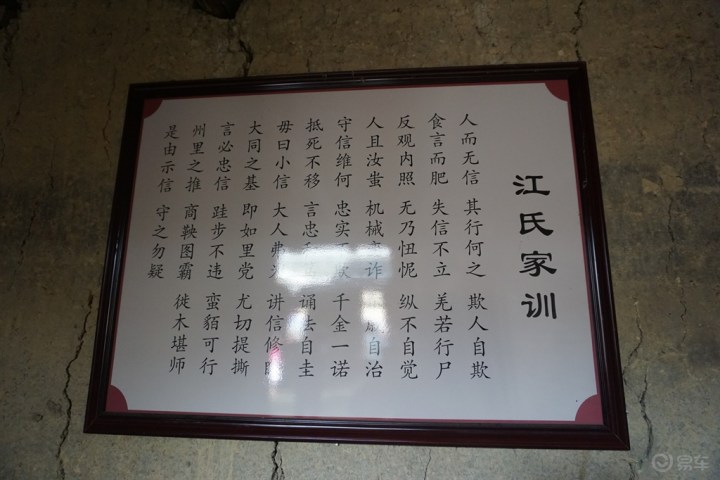 江氏家训
人而无信 其行何之 欺人自欺
食言而肥 失信不立 羌若行尸
反观内照 无乃忸怩 纵不自觉
人且汝蚩 机械变诈 自治
守信维何 忠实 千金一诺
抵死不移 言忠 诵 自圭
毋曰小信 大人弗 讲信修睦
大同之基 即如里党 尤切提撕
言必忠信 跬步不违 蛮貊可行
州里之推 商鞅图霸 徙木堪师
是由示信 守之勿疑
易车